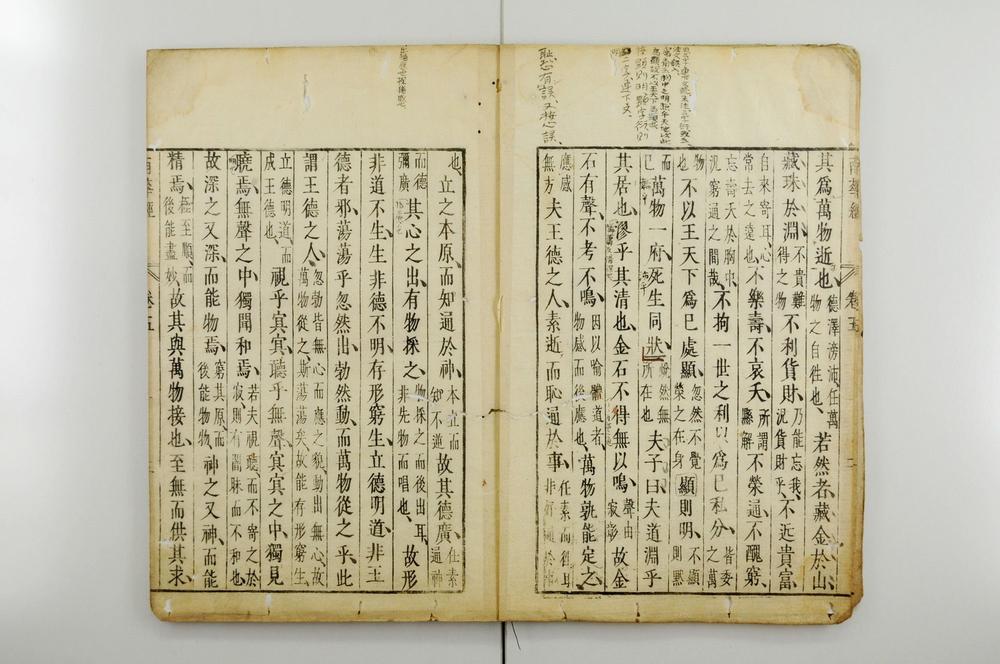 恥恐有誤又按心誤
南華經 卷五
其爲萬物逝也德澤滂沛任萬物之自往也若然者藏金於山
藏珠於淵不貴難得之物不利貨財乃能忘我況貨財乎不近貴富
自來寄耳心常去之遠也不樂壽不哀夭所謂縣解不榮通不醜窮
忘壽夭於胸中況窮通之間哉不拘一世之利以爲已私分皆委之萬
物也不以王天下爲已處顯忽然不覺榮之在身顯則明不顯則黙
而已萬物一府死生同狀蛻然無所在也夫子曰夫道淵乎
其居也漻乎其清也金石不得無以鳴聲由寂彰故金
石有聲不考不鳴因以喻體道者物感而後應也萬物孰能定之
應感無方夫王德之人素逝而恥通於事任素而往耳非好通於事
也立之本原而知通於神本立而知不逆故其德廣任素通神
而德彌廣其心之出有物採之物採之而後出耳非先物而唱也故形
非道不生生非德不明存形窮生立德明道非王
德者邪蕩蕩乎忽然出勃然動而萬物從之乎此
謂王德之人忽勃皆無心而應之貌動出無心故萬物從之斯蕩蕩矣故能存形窮生
立德明道而成王德也視乎冥冥聽乎無聲冥冥之中獨見
曉焉無聲之中獨聞和焉若夫視聽而不寄之於寂則有闇昧而不和也
故深之又深而能物焉窮其原而後能物物神之又神而能
精焉極至順而後能盡妙故其與萬物接也至無而供其求
南華經 卷五